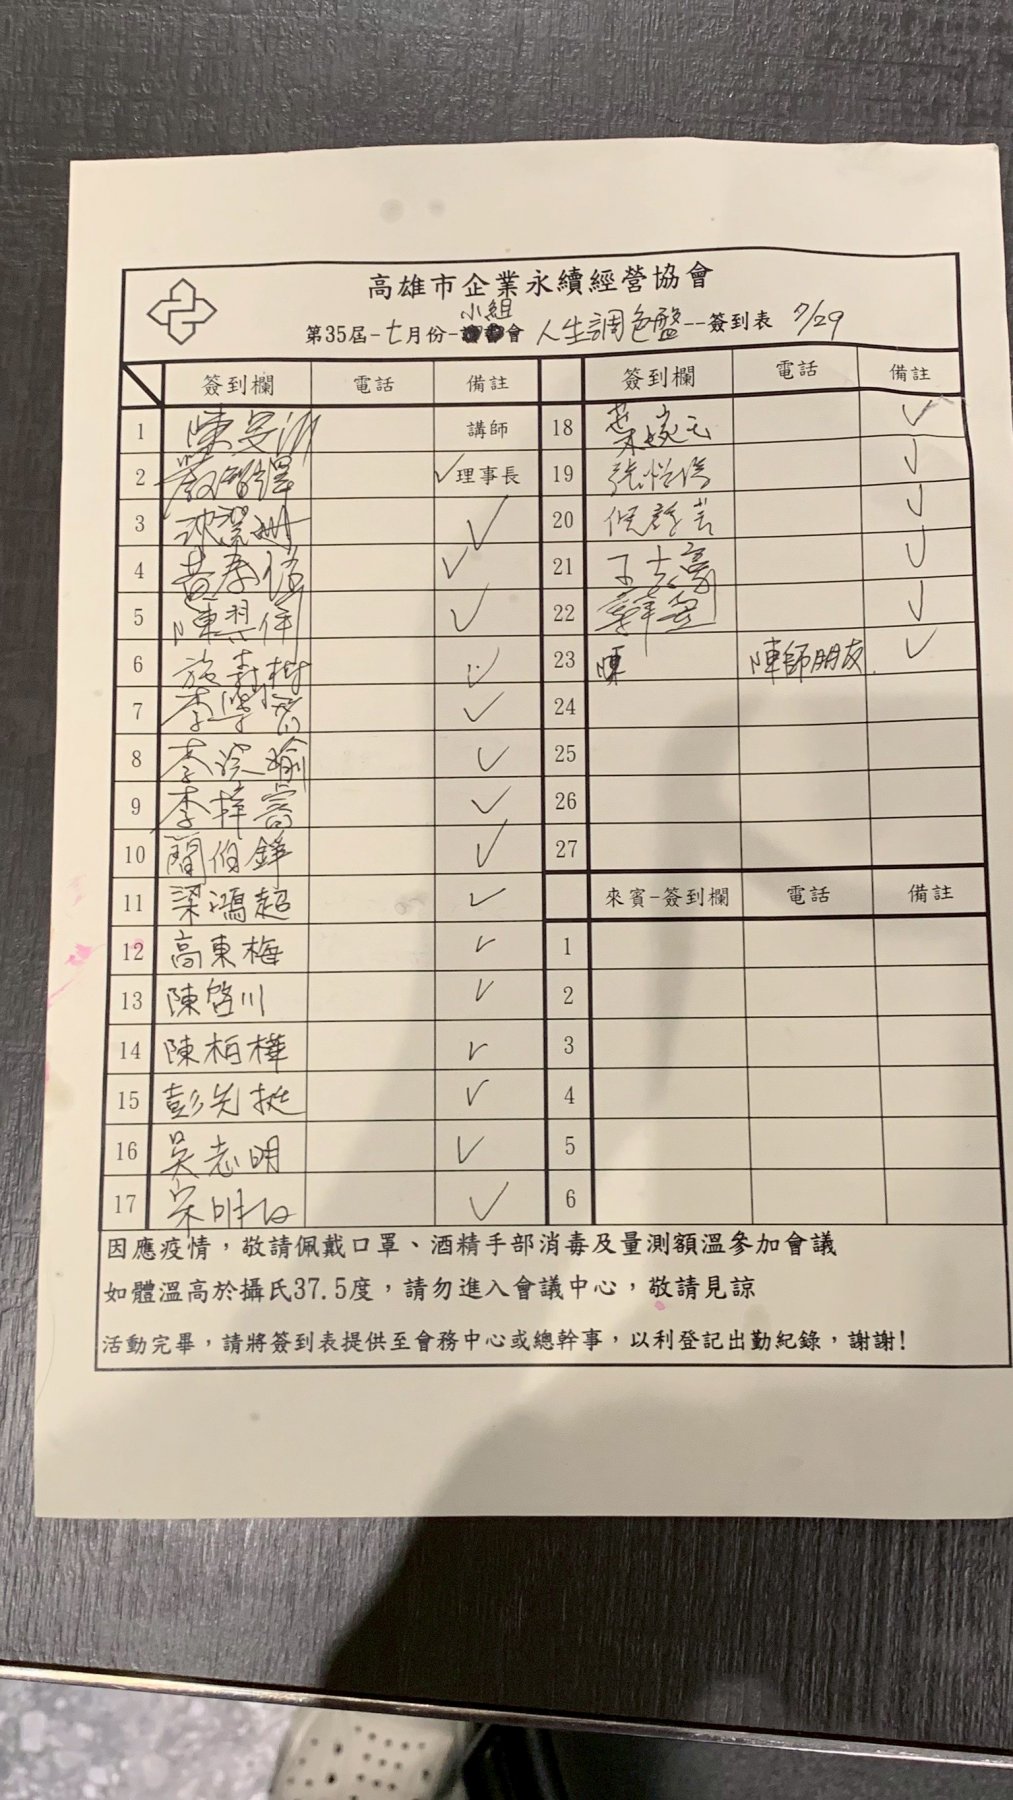 高雄市企業永續經營協會
小組
第35屆-七月份-會 人生調色盤--簽到表 7/29
簽到欄 電話 備註
1 陳 講師
2 ✓理事長
3 ✓
4 黃 ✓
5 陳 ✓
6 施壽樹 ✓
7 李 ✓
8 李 瑜 ✓
9 李 ✓
10 簡伯鋒 ✓
11 梁鴻超 ✓
12 高東梅 ✓
13 陳啓川 ✓
14 陳柏樺 ✓
15 彭先挺 ✓
16 吳志明 ✓
17 宋 ✓
簽到欄 電話 備註
18 葉婉 ✓
19 張 ✓
20 ✓
21 ✓
22 ✓
23 陳 陳師朋友 ✓
24
25
26
27
來賓-簽到欄 電話 備註
1
2
3
4
5
6
因應疫情，敬請佩戴口罩、酒精手部消毒及量測額溫參加會議
如體溫高於攝氏37.5度，請勿進入會議中心，敬請見諒
活動完畢，請將簽到表提供至會務中心或總幹事，以利登記出勤紀錄，謝謝!